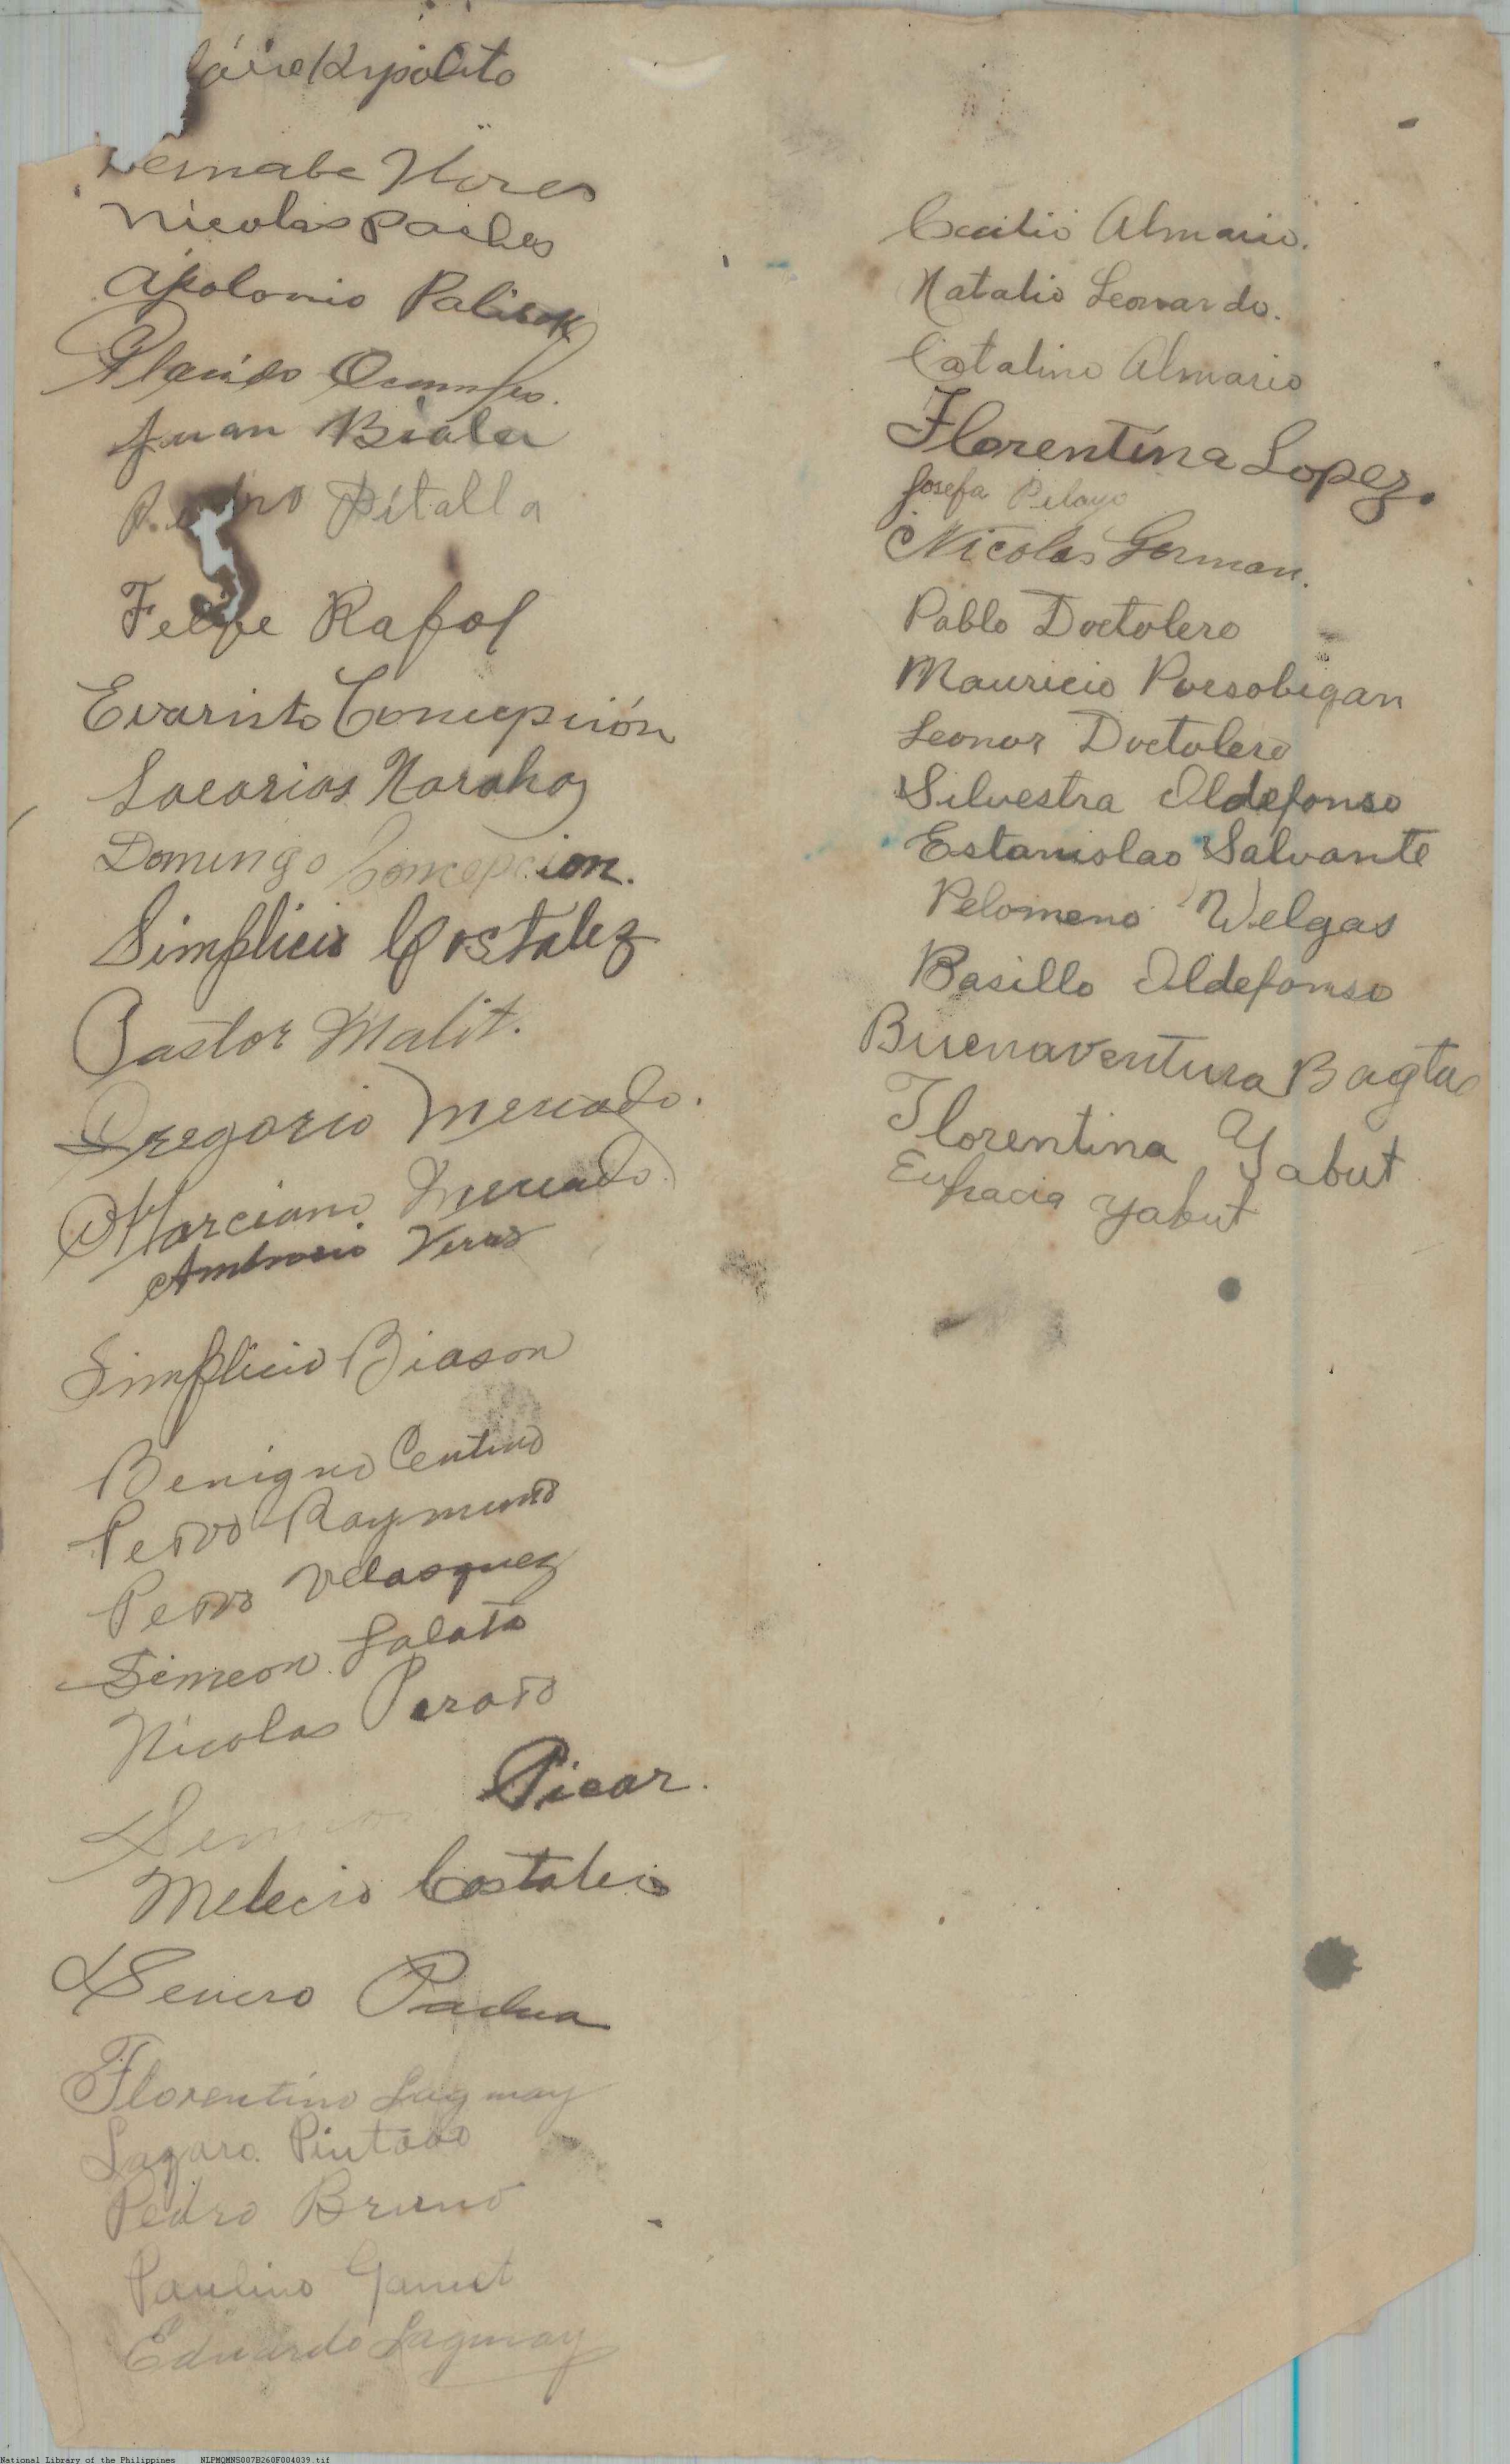 Hypolito
Bernabe Flores
Nicolas Paches
Apolonio Palisok
Placido Ocampo.
Juan Biala
Pedro Pitalla
Felipe Rafol
Evaristo Concepción
Sacarias Naraha
Domingo Concepcion.
Simplicio Costales
Pastor Malit.
Gregorio Mercado.
Marciano Mercado.
Ambrosio Veras
Simplicio Biason
Benigno Centino
Pedro Raymundo
Pedro Velasquez
Simeon Salato
Nicolas
Picar.
Melecio Costales
Severo Padua
Florentino Lagmay
Lazaro Pintado
Pedro Bruno
Paulino Gamet
Eduardo Lagmay
Cecilio Almario.
Natalio Leonardo.
Catalino Almario
Florentina Lopez.
Josefa Pelayo
Nicolas German.
Pablo Doctolero
Mauricio Porsobigan
Leonor Doctolero
Silvestra Ildefonso
Estanislao Salvante
Pelomeno Welgas
Basillo Ildefonso
Buenaventura Bagtas
Florentina Yabut
Eufracia Yabut
National Library of the Philippines NLPMQMNS007B260F004039.tif